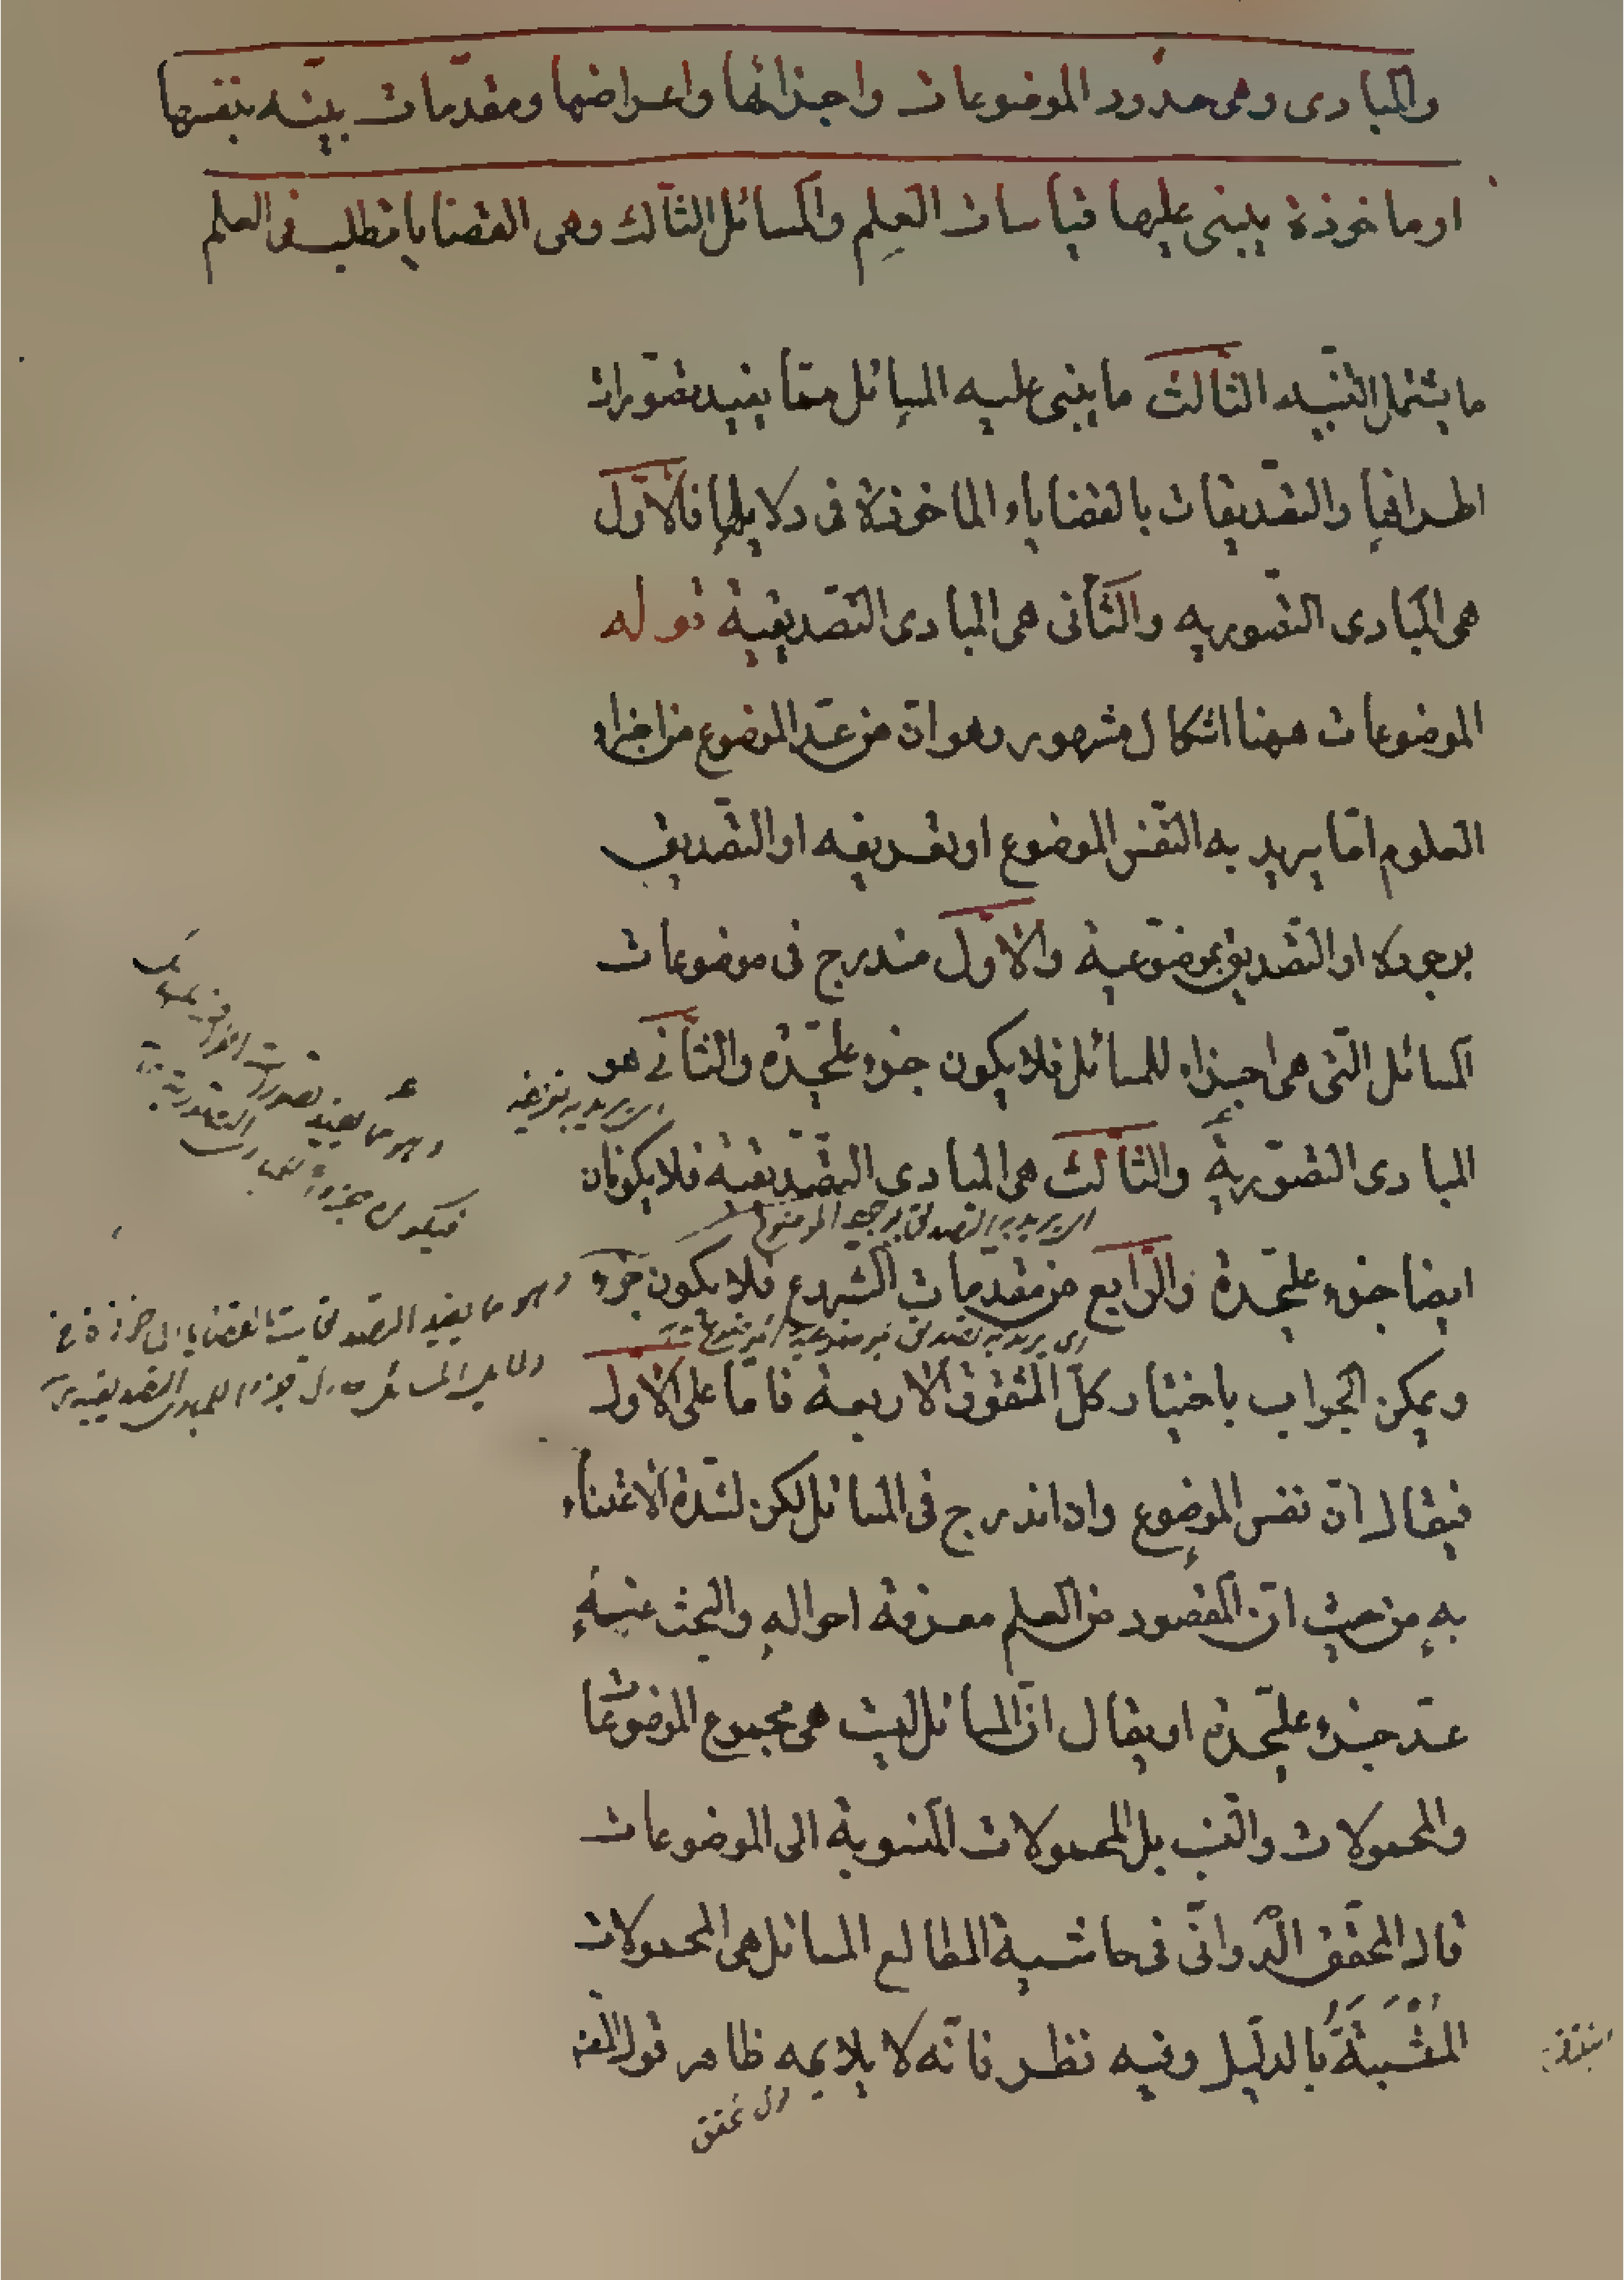 والمبادى وهى حدود الموضوعات واجزائها واعراضها ومقدّمات بيّنه بنفسها
او ماخوذة يبنى عليها قياسات العلم والمسائل الثالث وهى القضايا يطلب فى العلم
ما يشتمل التنبيه الثالث ما يبنى عليه المسائل ممّا يفيد تصوّرات
اطرافها والتصديقات بالقضاياء الماخوذة فى دلايلها فالاوّل
هى المبادى التصوريه والثانى هى المبادى التصديقية قوله
الموضوعات ههنا اشكال مشهور وهو انّ من عدّ الموضوع من اجزاء
العلوم امّا يريد به النفس الموضوع او تعريفه او التصديق
بوجوده او التصديق بموضوعية والاوّل مندرج فى موضوعات
المسائل الّتى هى اجزاء للمسائل فلا يكون جزء عليحدة والثانى هو
اى يريد به تعريفه
المبادى التصوّرية والثالث هى المبادى التصديقية فلا يكونان
اى يريد به التصديق بوجود الموضوع
ايضا جزء عليحدة والرّابع من مقدّمات الشروع فلا يكون جزء
ويمكن الجواب باختيار كلّ الشقوق الاربعة فامّا على الاول
فيقال انّ نفس الموضوع وان اندرج فى المسائل لكن لشدّة الاعتناء
به من حيث انّ المقصود من العلم معرفة احواله والبحث عنه
عدّ جزء عليحدة او يقال انّ المسائل ليست هى مجموع الموضوعات
والمحمولات والنسب بل المحمولات المنسوبة الى الموضوعات
قال المحقّق الدّوانّى فى حاشية المطالع المسائل هى المحمولات
المُثْبَتَةُ بالدليل وفيه نظر فانّه لا يلايمه ظاهر قول المص
اى محقق
وهو ما يفيد تصورات
فيكون جزء من المبادى التصورية
وهو ما يفيد التصديقات بالقضايا الماخوذة فى
دلايل المسائل